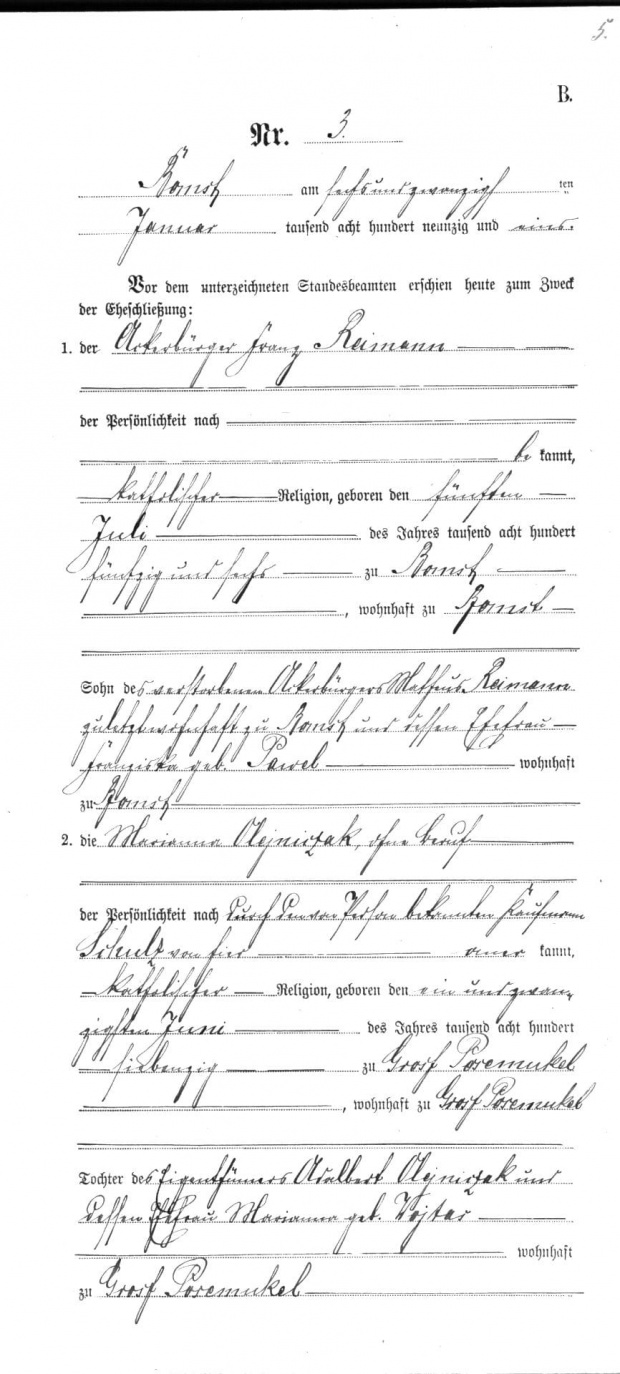 5.
B.
Nr. 3.
Bomst am sechsundzwanzigsten
Januar tausend acht hundert neunzig und eins.
Vor dem unterzeichneten Standesbeamten erschien heute zum Zweck
der Eheschließung:
1. der Ackerbürger Franz Reimann
der Persönlichkeit nach
be kannt,
katholischer Religion, geboren den fünften
Juli des Jahres tausend acht hundert
fünfzig und sechs zu Bomst
, wohnhaft zu Bomst
Sohn des verstorbenen Ackerbürgers Matheus Reimann
zuletzt wohnhaft zu Bomst und dessen Ehefrau
Franziska geb. Pawel wohnhaft
zu Bomst
2. die Marianna Olejniczak, ohne Beruf
der Persönlichkeit nach durch den von Person bekannten Kaufmann
Schulz von hier aner kannt,
katholischer Religion, geboren den ein und zwan-
zigsten Juni des Jahres tausend acht hundert
siebenzig zu Gross Posemukel
, wohnhaft zu Gross Posemukel
Tochter des Eigenthümers Adalbert Olejniczak und
dessen Ehefrau Marianna geb. Wojtar
wohnhaft
zu Gross Posemukel